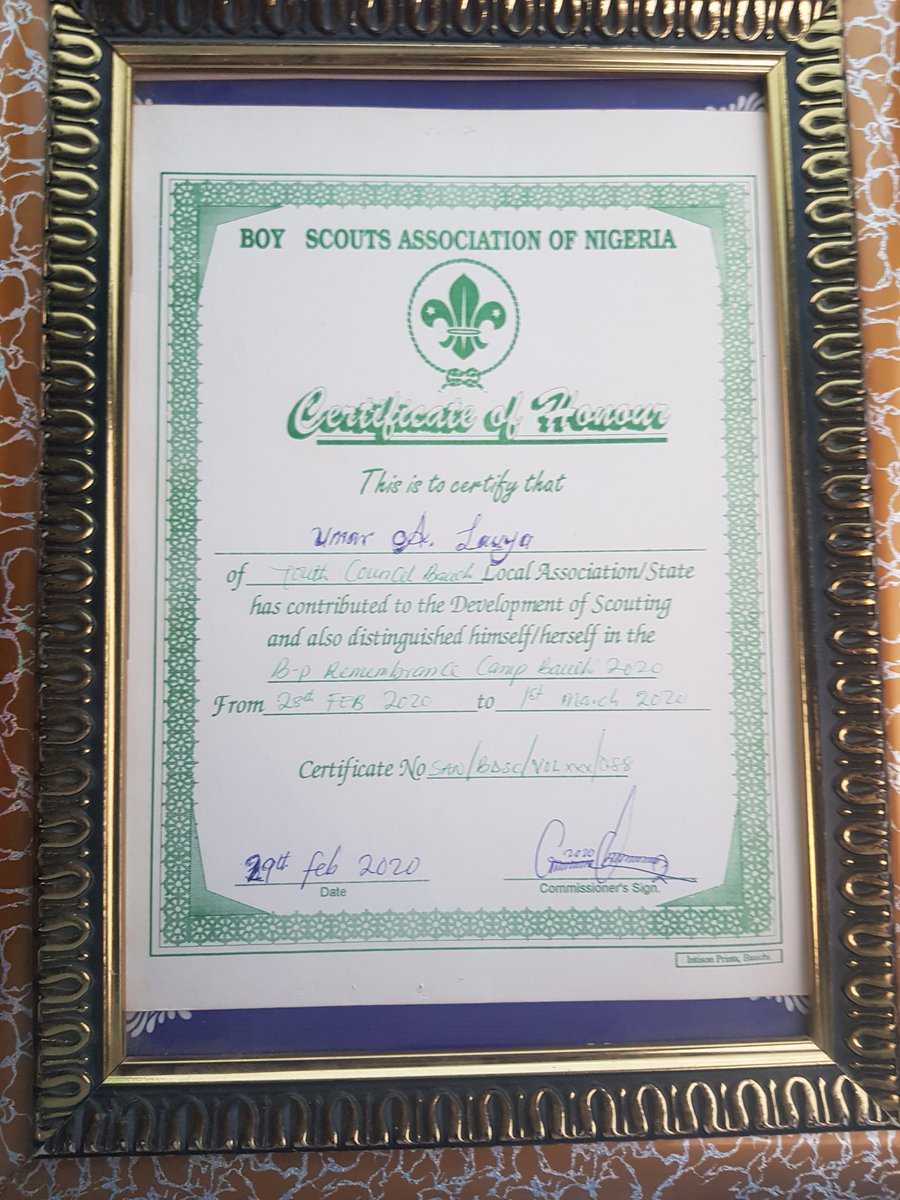 BOY SCOUTS ASSOCIATION OF NIGERIA
Certificate of Honour
This is to certify that
Umar A. Lauya
of Youth Council Bauchi Local Association/State
has contributed to the Development of Scouting
and also distinguished himself/herself in the
B-P Remembrance Camp Bauchi 2020
From 28th FEB 2020 to 1st March 2020
Certificate No SAN/BDSC/VOL XXX/088
29th Feb 2020
Date
2020
Commissioner's Sign.
Intison Prints, Bauchi.